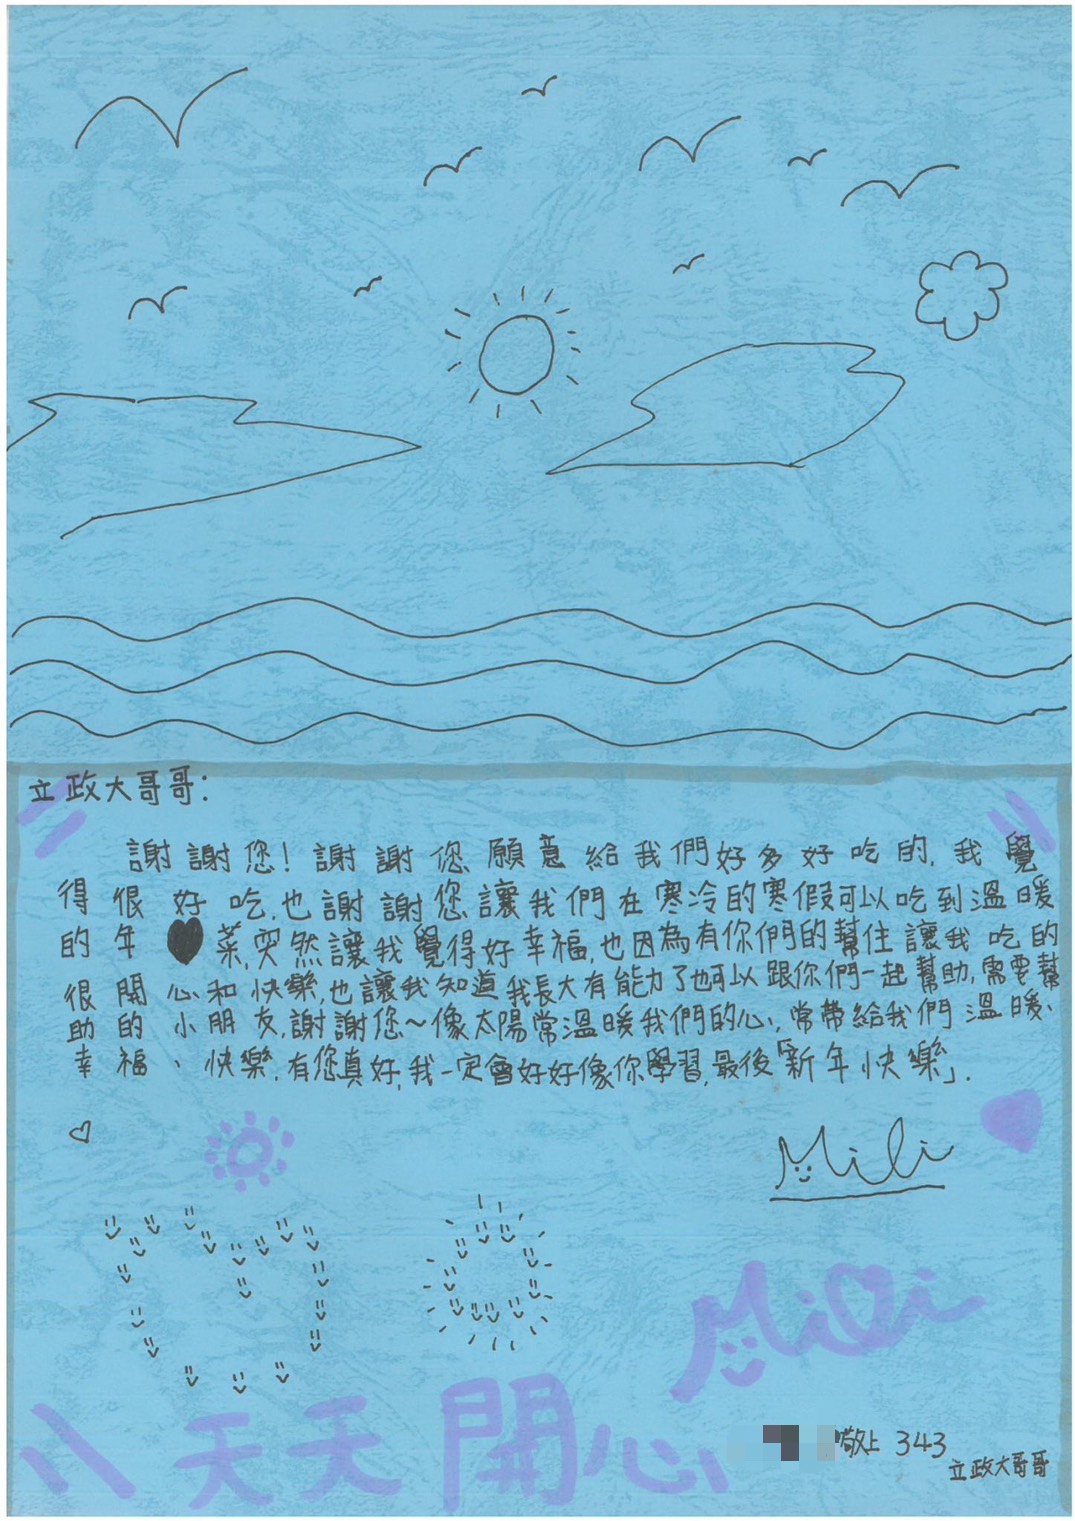 立政大哥哥：
謝謝您！謝謝您願意給我們好多好吃的，我覺
得很好吃，也謝謝您讓我們在寒冷的寒假可以吃到溫暖
的年菜，突然讓我覺得好幸福，也因為有你們的幫住讓我吃的
很開心和快樂，也讓我知道我長大有能力了也可以跟你們一起幫助，需要幫
助的小朋友，謝謝您～像太陽常溫暖我們的心，常帶給我們溫暖、
幸福、快樂，有您真好，我一定會好好像你學習，最後「新年快樂」.
Mili
Mili
天天開心
敬上 343
立政大哥哥